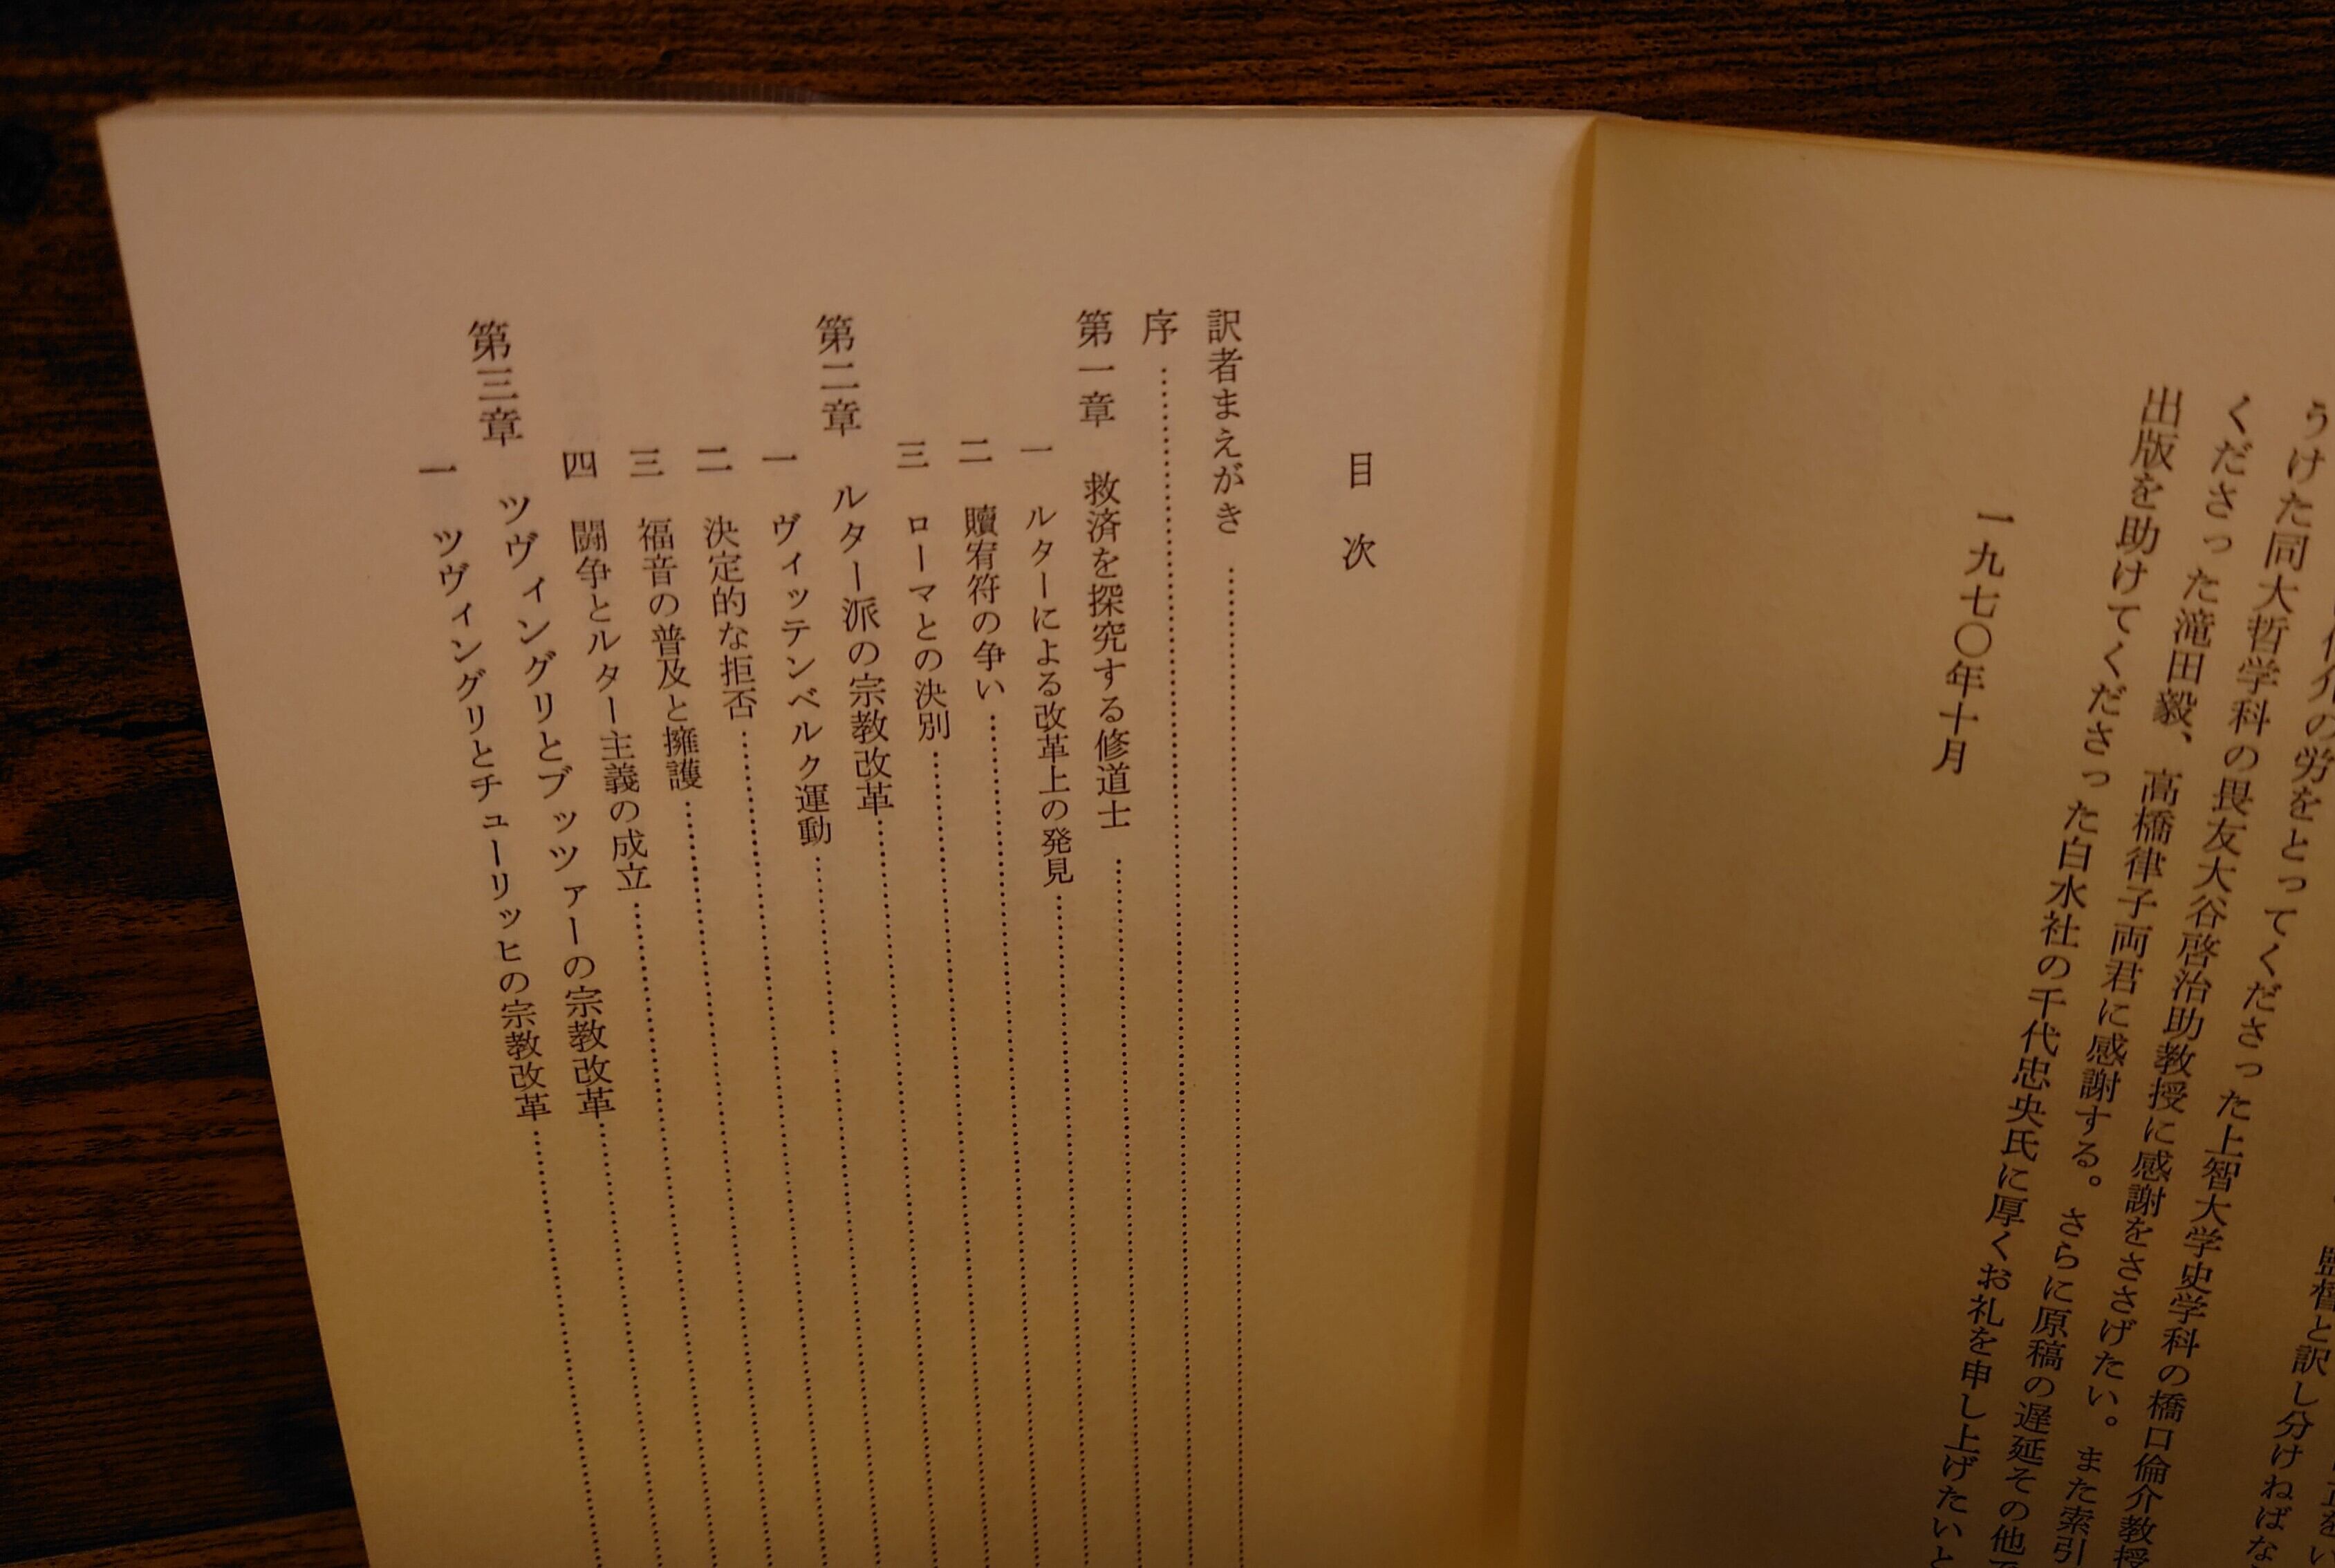 うけた同大哲学科の畏友大谷啓治助教授に感謝をささげたい。また索引
くださった滝田毅、高橋律子両君に感謝する。さらに原稿の遅延その他
出版を助けてくださった白水社の千代忠央氏に厚くお礼を申し上げたいと
一九七〇年十月
目次
訳者まえがき
序
第一章 救済を探究する修道士
一 ルターによる改革上の発見
二 贖宥符の争い
三 ローマとの決別
第二章 ルター派の宗教改革
一 ヴィッテンベルク運動
二 決定的な拒否
三 福音の普及と擁護
四 闘争とルター主義の成立
第三章 ツヴィングリとブッツァーの宗教改革
一 ツヴィングリとチューリッヒの宗教改革